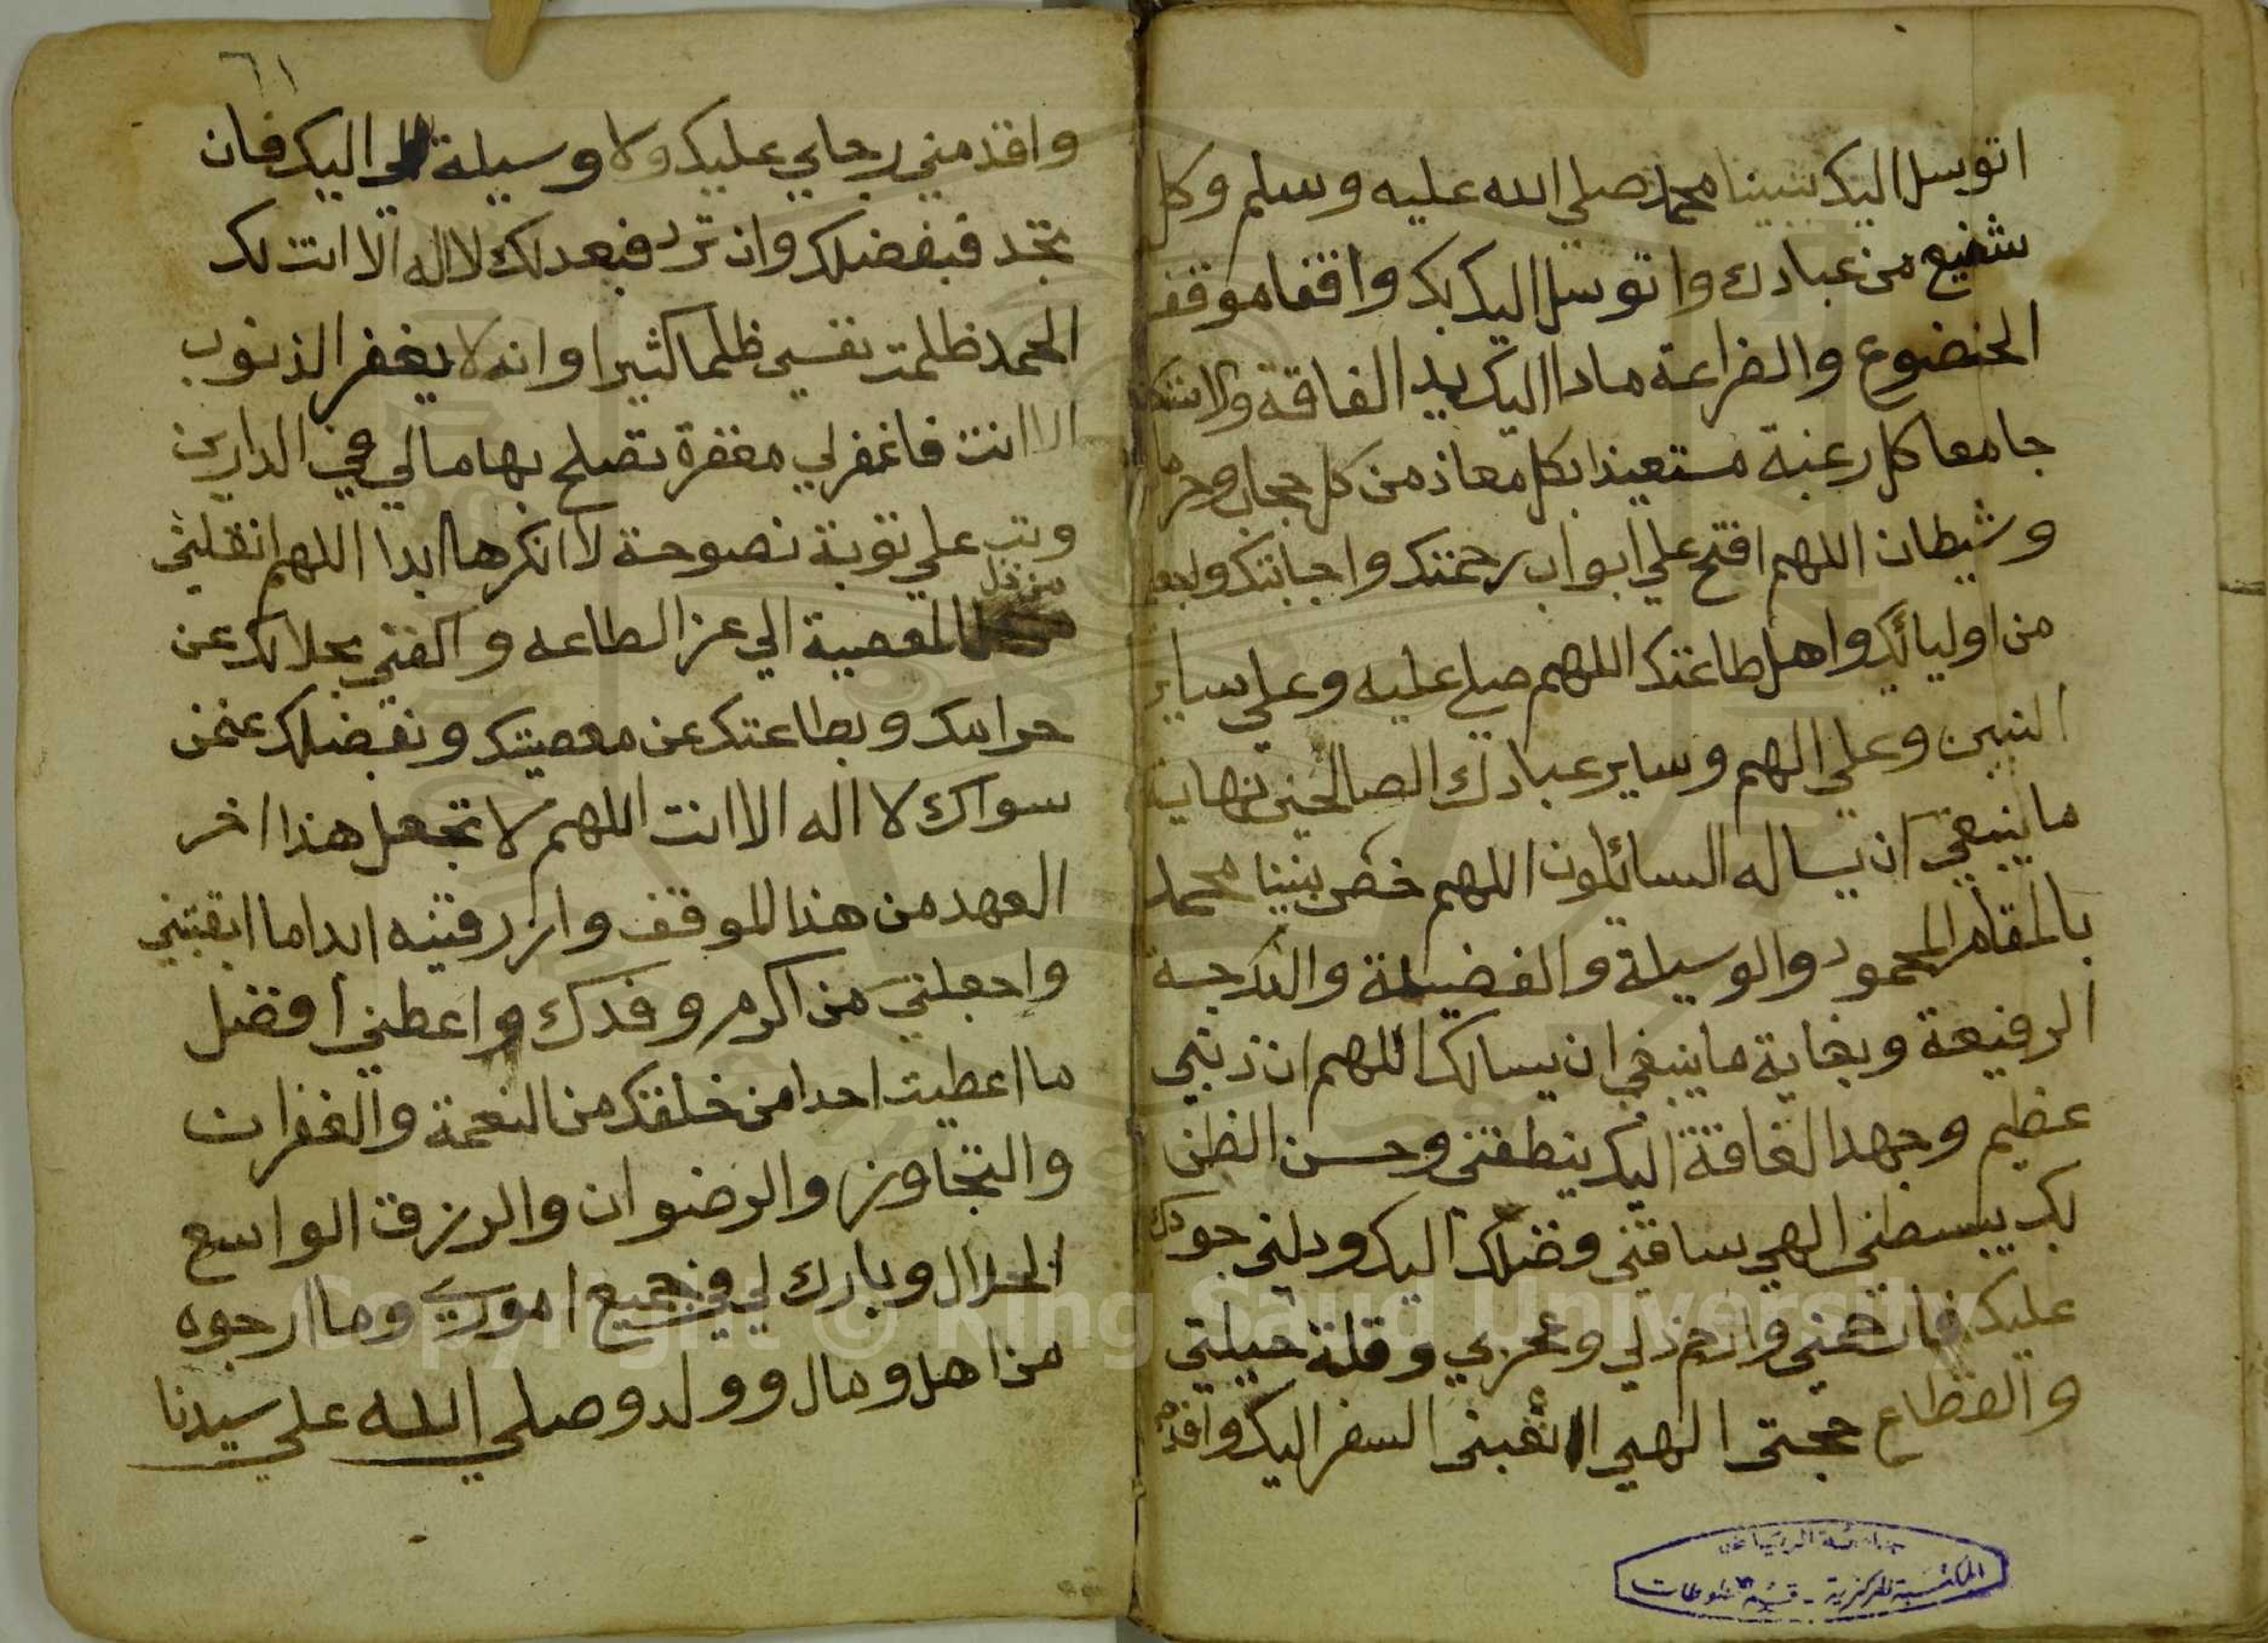 اتوسل اليك بنبينا محمد صلي الله عليه وسلم وكل
شفيع من عبادك واتوسل اليك بك واقفا موقف
الخضوع والضراعة مادا اليك يد الفاقة
جامعا كل رغبة مستعيذا بكل معاذ من كل
وشيطان اللهم افتح علي ابواب رحمتك واجابتك
من اوليائك واهل طاعتك اللهم صلي عليه وعلي ساير
النبين وعلي الهم وساير عبادك الصالحين نهاية
ما ينبغي ان يساله السائلون اللهم خص نبينا محمد
بالمقام المحمود والوسيلة والفضيلة والدرجة
الرفيعة وبغاية ما ينبغي ان يسالك اللهم ان ذنبي
عظيم وجهد الفاقة اليك ينطقني وحسن الظن
بك يبسطني الهي ساقني فضلك اليك ودلني جودك
عليك وارحم ذلي وعجزي وقلة حيلتي
والقطاع حجتي الهي اتعبني السفر اليك
٦١
واقدمني رجاي عليك ولا وسيلة لي اليك فان
تجد فبفضلك وان ترد فبعدلك لا اله الا انت لك
الحمد ظلمت نفسي ظلما كثيرا وانه لا يغفر الذنوب
الا انت فاغفر لي مغفرة تصلح بها مالي في الدارين
وتب علي توبة نصوحة لا انكرها ابدا اللهم انقلني
من ذل
المعصية الي عز الطاعه واكفني بحلالك عن
حرامك وبطاعتك عن معصيتك وبفضلك عنمن
سواك لا اله الا انت اللهم لا تجعل هذا اخر
العهد من هذا الموقف وارزرقنيه ابدا ما ابقيتني
واجعلني من اكرم وفدك واعطني افضل
ما اعطيت احدا من خلقك من النعمة والغفران
والتجاوز والرضوان والرزق الواسع
الحلال وبارك لي في جميع اموري وما ارجوه
من اهل ومال وولد وصلي الله علي سيدنا
جامعة الرياض
المكتبة المركزية - قسم المخطوطات
Copyright © King Saud University